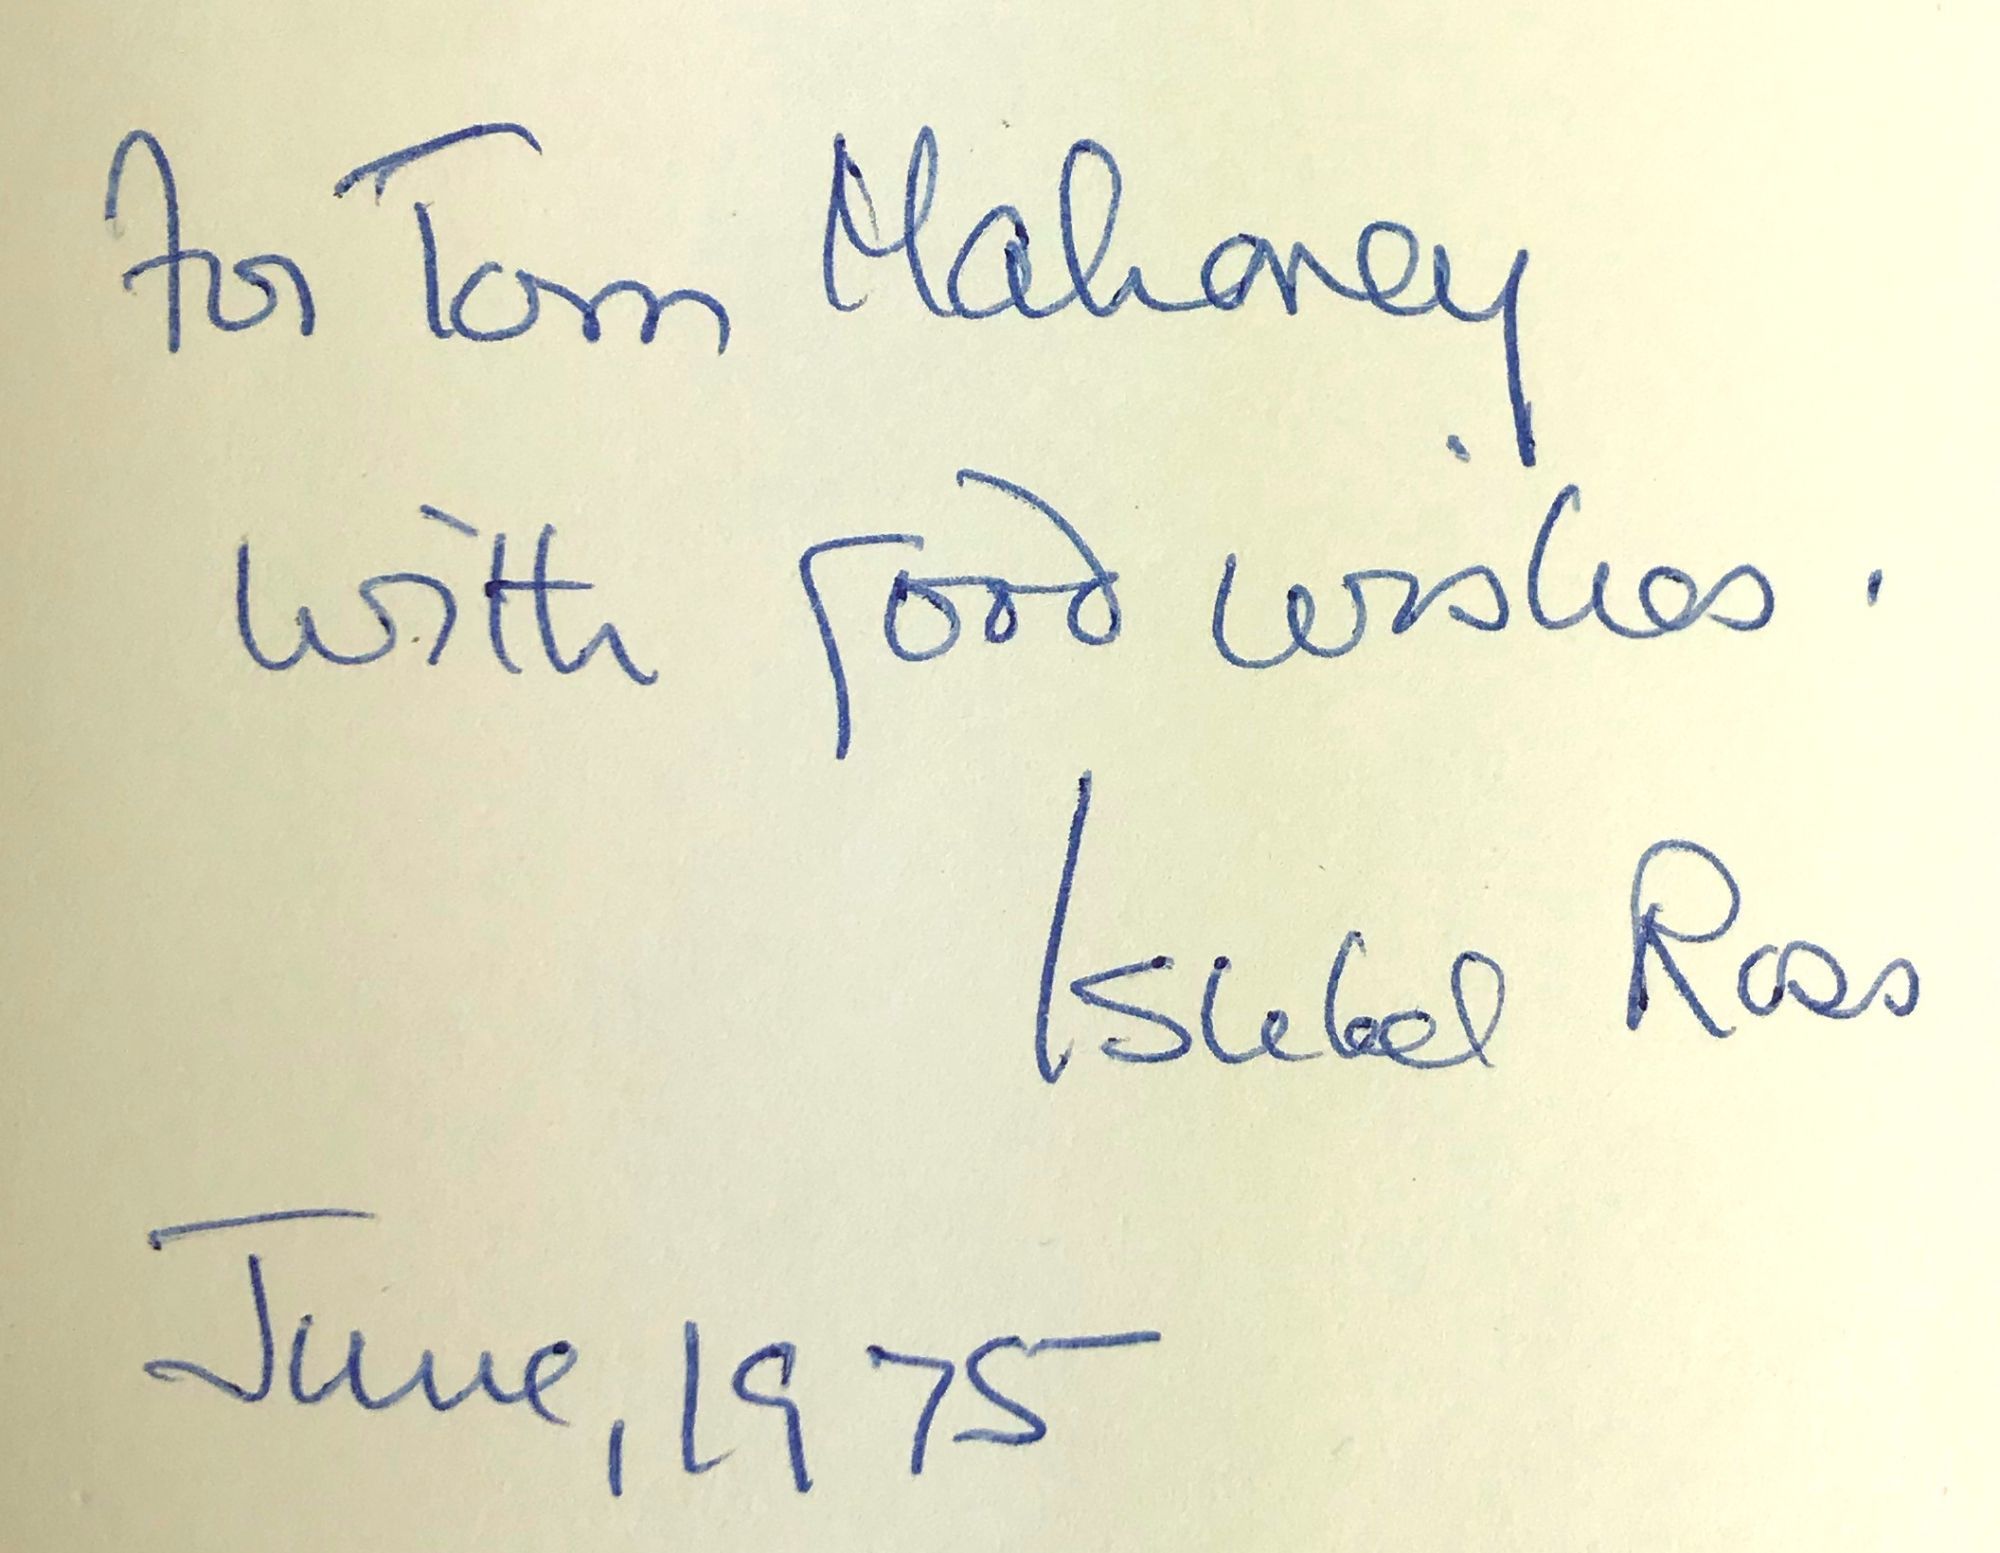 For Tom Mahoney
with good wishes.
Ishbel Ross
June, 1975